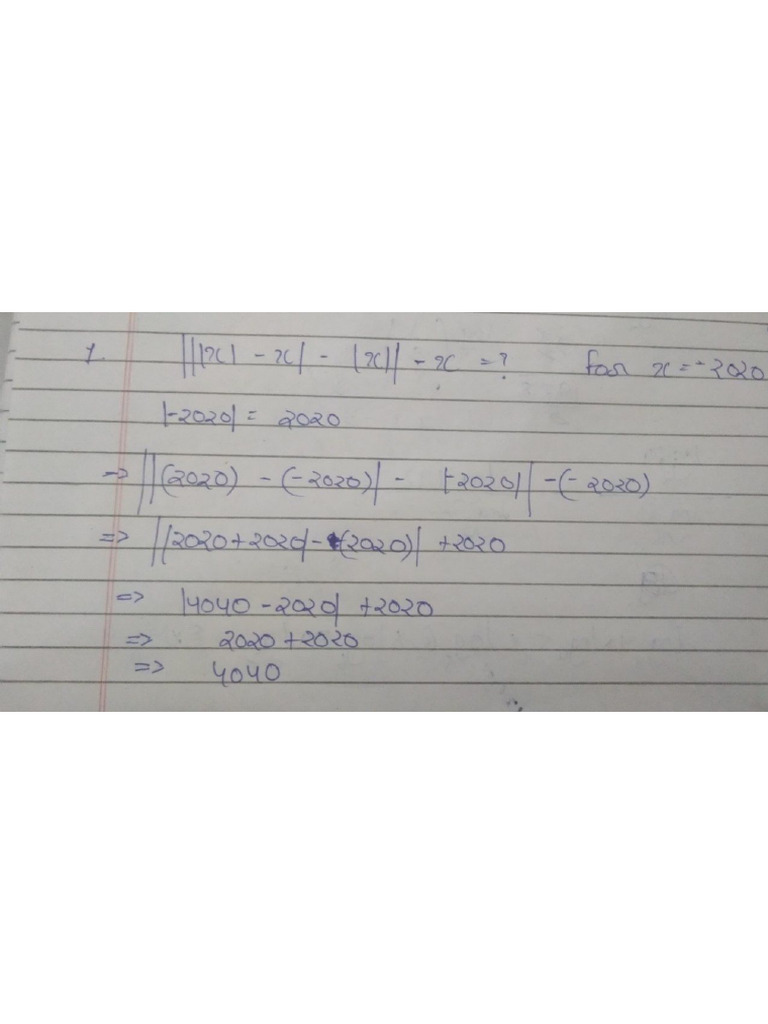 1. |||x| - x| - |x|| - x = ? for x = -2020
|-2020| = 2020
=> ||(2020) - (-2020)| - |-2020|| - (-2020)
=> ||2020+2020| - (2020)| + 2020
=> |4040 - 2020| + 2020
=> 2020 + 2020
=> 4040